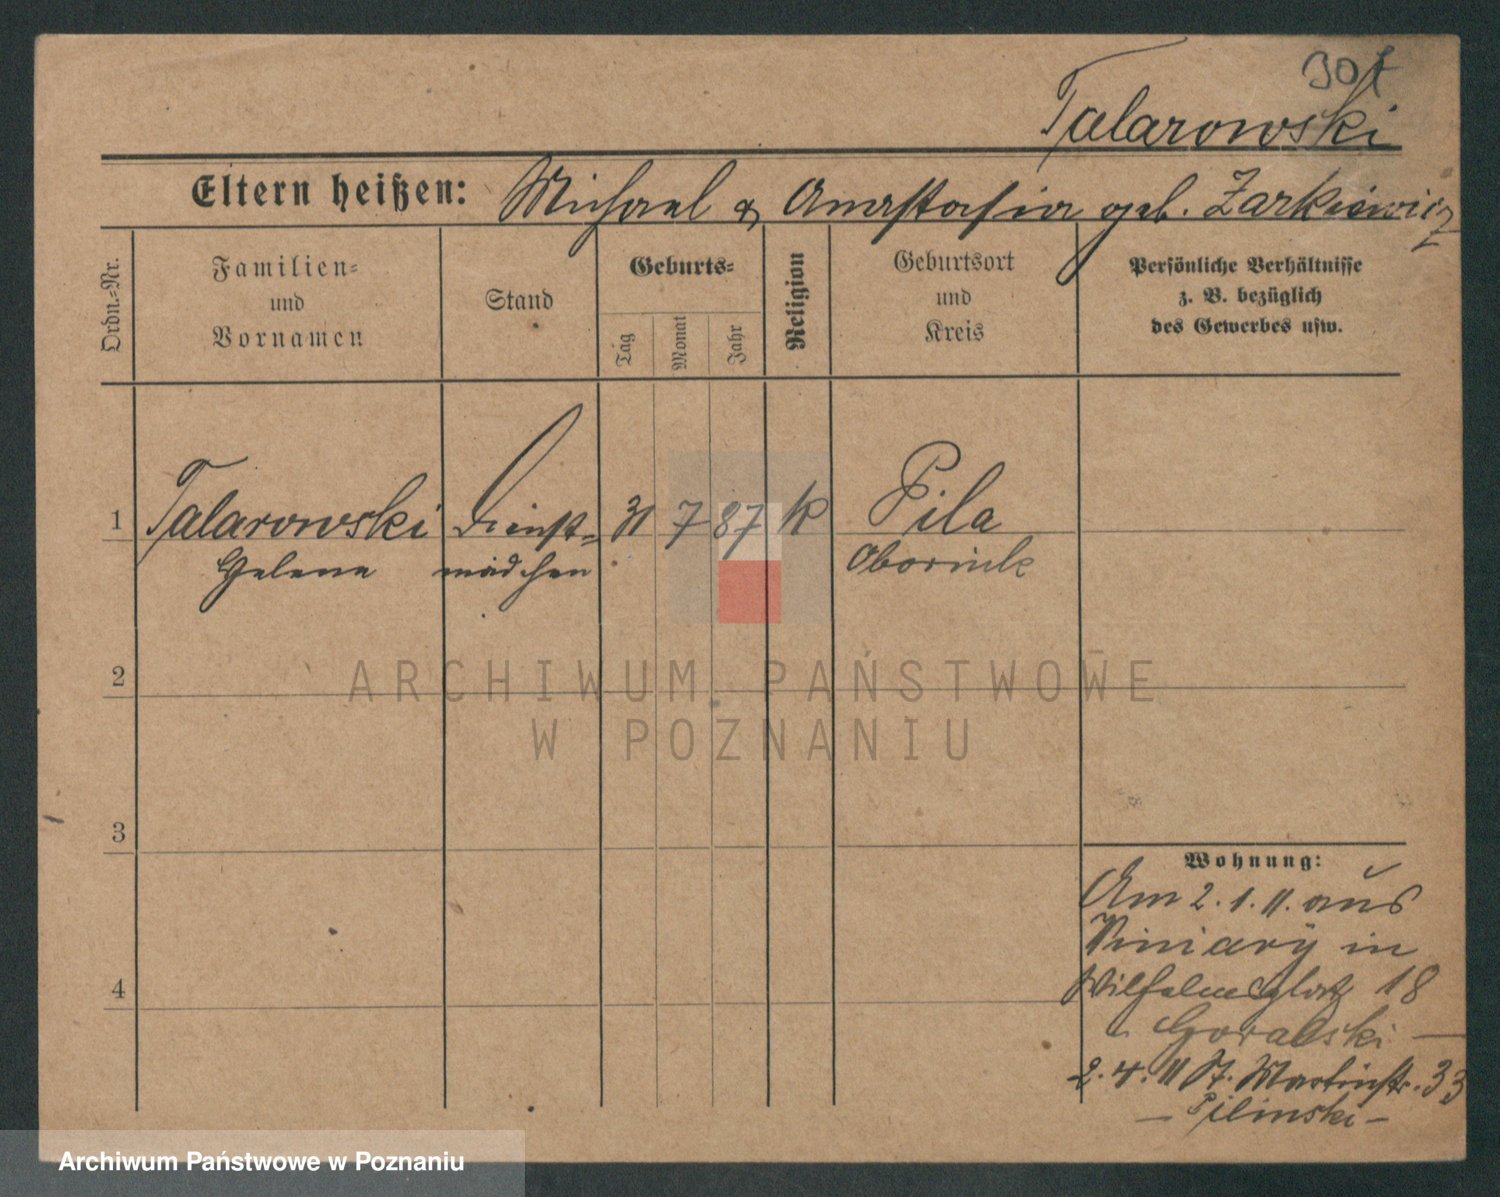 301
Talarowski
Eltern heißen: Michael & Anastasia geb. Zarkiewicz
Ordn.-Nr.
Familien-
und
Vornamen
Stand
Geburts-
Tag
Monat
Jahr
Religion
Geburtsort
und
Kreis
Persönliche Verhältnisse
z. B. bezüglich
des Gewerbes usw.
1 Talarowski Dienst- 31 7 87 k Pila
Helena mädchen Obornick
2
3
4
Wohnung:
Am 2.1.11. aus
Winiary in
Wilhelmsplatz 18
Goralski —
2.4.11 St. Martinstr. 33
— Pilinski —
ARCHIWUM PAŃSTWOWE
W POZNANIU
Archiwum Państwowe w Poznaniu